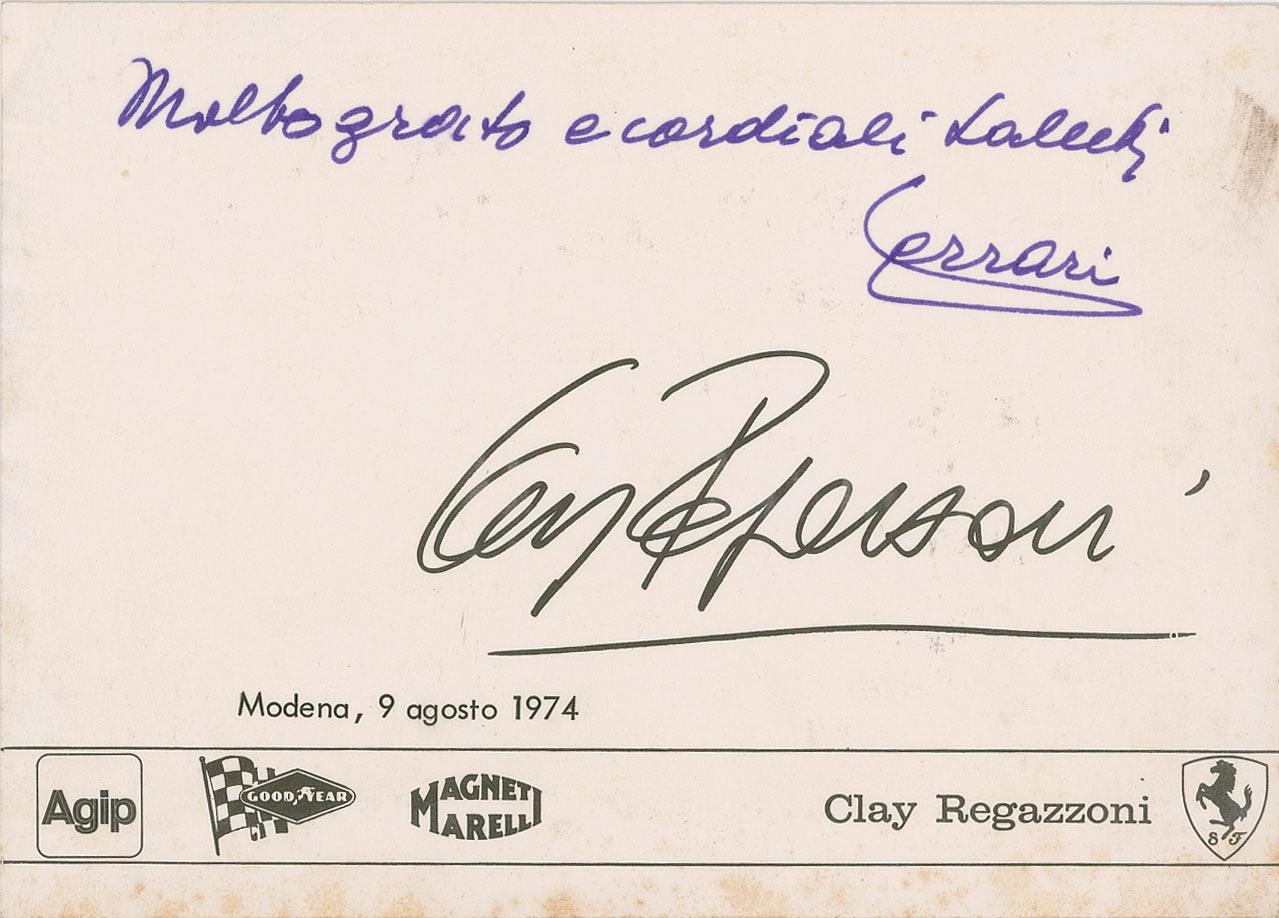 Molto grato e cordiali saluti
Ferrari
Clay Regazzoni
Modena, 9 agosto 1974
Agip
GOODYEAR
MAGNETI
MARELLI
Clay Regazzoni
S F